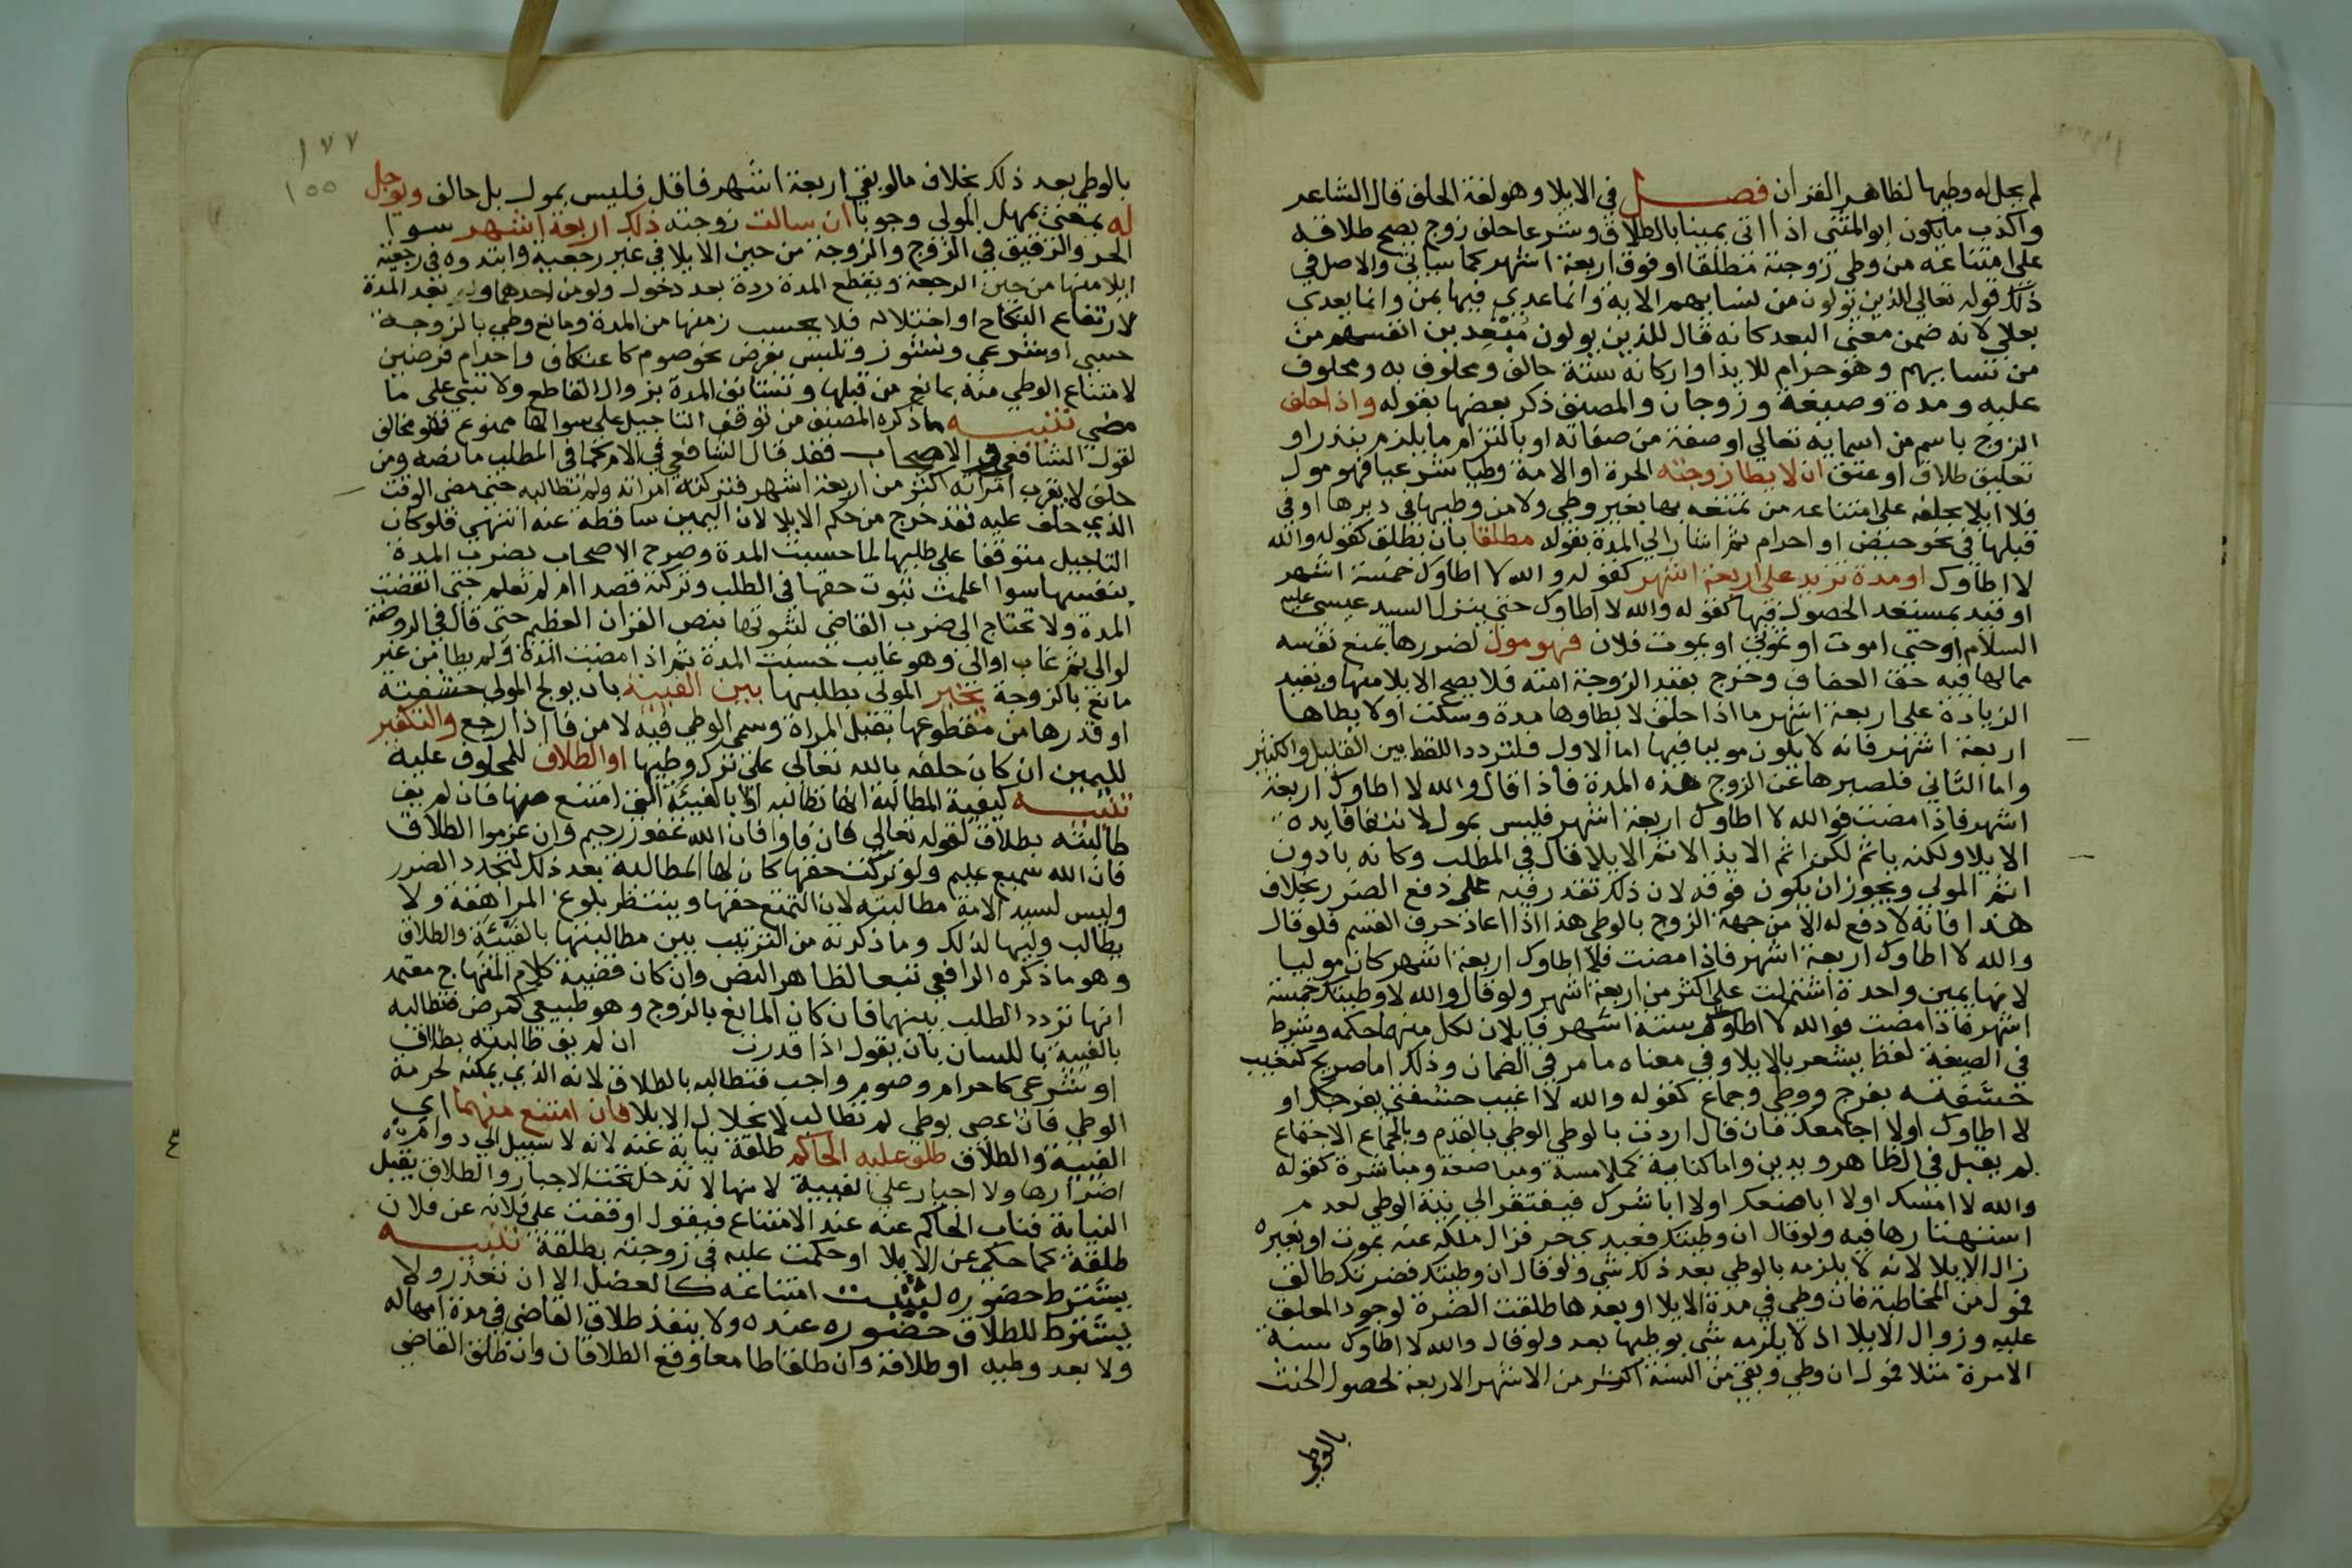 لم يحل له وطيها لظاهر القران فصل في الايلا وهو لغة الحلف قال الشاعر
واكذب ما يكون ابو المثنى اذا اتى يمينا بالطلاق وشرعا حلف زوج يصح طلاقه
على امتناعه من وطي زوجته مطلقا او فوق اربعة اشهر كما سياتي والاصل في
ذلك قوله تعالى للذين يولون من نسايهم الاية وانما عدي فيها بمن وانما يعدى
بعلى لانه ضمن معنى البعد كانه قال للذين يولون مبعدين انفسهم من
من نسايهم وهو حرام للايذا واركانه ستة حالف ومحلوف به ومحلوف
عليه ومدة وصيغة وزوجان والمصنف ذكر بعضها بقوله واذا حلف
الزوج باسم من اسمايه تعالى او صفة من صفاته او بالتزام ما يلزم بنذر او
تعليق طلاق او عتق ان لا يطا زوجته الحرة او الامة وطيا شرعيا فهو مول
فلا ايلا بحلفه على امتناعه من تمتعه بها بغير وطي ولا من وطيها في دبرها او في
قبلها في نحو حيض او احرام ثم اشار الى المدة بقوله مطلقا بان يطلق كقوله والله
لا اطاوك او مدة تزيد على اربعة اشهر كقوله والله لا اطاوك خمسة اشهر
او قيد بمستبعد الحصول فيها كقوله والله لا اطاوك حتى ينزل السيد عيسى عليه
السلام او حتى اموت او تموتي او يموت فلان فهو مول لضررها بمنع نفسه
مما لها فيه حق العفاف وخرج بقيد الزوجة امته فلا يصح الايلا منها وبقيد
الزيادة على اربعة اشهر ما اذا حلف لا يطاوها مدة وسكت او لا يطاها
اربعة اشهر فانه لا يكون موليا فيها اما الاول فلتردد اللفظ بين القليل والكثير
واما الثاني فلصبرها عن الزوج هذه المدة فاذا قال والله لا اطاوك اربعة
اشهر فاذا مضت فوالله لا اطاوك اربعة اشهر فليس بمول لانتفا فايدة
الايلا ولكنه ياثم لكن اثم الايذا لا اثم الايلا قال في المطلب وكانه يا دون
اثم المولي ويجوز ان يكون فوقه لان ذلك تقدر فيه على دفع الضرر بخلاف
هذا فانه لا دفع له الا من جهة الزوج بالوطي هذا اذا اعاد حرف القسم فلو قال
والله لا اطاوك اربعة اشهر فاذا مضت فلا اطاوك اربعة اشهر كان موليا
لانها يمين واحدة اشتملت على اكثر من اربعة اشهر ولو قال والله لا وطيتك خمسة
اشهر فاذا مضت فوالله لا اطاوك ستة اشهر فايلان لكل منهما حكمه وشرط
في الصيغة لفظ يشعر بالايلا وفي معناه ما مر في الضمان وذلك اما صريح كتغييب
حشفته بفرج ووطي وجماع كقوله والله لا اغيب حشفتي بفرجك او
لا اطاوك او لا اجامعك فان قال اردت بالوطي الوطي بالقدم وبالجماع الاجتماع
لم يقبل في الظاهر ويدين واما كناية كملامسة ومباضعة ومباشرة كقوله
والله لا امسك او لا اباضعك او لا اباشرك فيفتقر الى نية الوطي لعدم
اشتهارها فيه ولو قال ان وطيتك فعبدي حر فزال ملكه عنه بموت او بغيره
زال الايلا لانه لا يلزمه بالوطي بعد ذلك شي ولو قال ان وطيتك فضرتك طالق
فمول من المخاطبة فان وطي في مدة الايلا او بعدها طلقت الضرة لوجود المعلق
عليه وزوال الايلا اذ لا يلزمه شي بوطيها بعد ولو قال والله لا اطاوك سنة
الا مرة مثلا فمول ان وطي وبقي من السنة اكثر من الاشهر الاربعة لحصول الحنث
بالوطي
١٧٧
١٥٥
بالوطي بعد ذلك بخلاف ما لو بقي اربعة اشهر فاقل فليس بمول بل حالف ويوجل
له بمعنى يمهل المولي وجوبا ان سالت زوجته ذلك اربعة اشهر سوا
الحر والرقيق في الزوج والزوجة من حين الايلا في غير رجعية وابتدوه في رجعية
ايلا منها من حين الرجعة ويقطع المدة ردة بعد دخول ولو من احدهما وبعد المدة
لارتفاع النكاح او اختلاله فلا يحسب زمنها من المدة ومانع وطي بالزوجة
حسي او شرعي ونشوز وتلبس بفرض نحو صوم كاعتكاف واحرام فرضين
لامتناع الوطي منه بمانع من قبلها وتستانف المدة بزوال القاطع ولا تبني على ما
مضي تنبيه ما ذكره المصنف من توقف التاجيل على سوالها ممنوع فهو مخالف
لقول الشافعي والاصحاب فقد قال الشافعي في الام كما في المطلب ما نصه ومن
حلف لا يقرب امراته اكثر من اربعة اشهر فتركته امراته ولم تطالبه حتى مضى الوقت
الذي حلف عليه فقد خرج من حكم الايلا لان اليمين ساقطة عنه انتهى فلو كان
التاجيل متوقفا على طلبها لما حسبت المدة وصرح الاصحاب بضرب المدة
بنفسها سوا اعلمت ثبوت حقها في الطلب وتركته قصدا ام لم تعلم حتى انقضت
المدة ولا تحتاج الى ضرب القاضي لثبوتها بنص القران العظيم حتى قال في الروضة
لو الى ثم غاب او الى وهو غايب حسبت المدة ثم اذا مضت المدة ولم يطا من غير
مانع بالزوجة يخير المولي بطلبها بين الفيية بان يولج المولي حشفته
او قدرها من مقطوعها بقبل المراة وسمي الوطي فيه لا من فا اذا رجع والتكفير
لليمين ان كان حلفه بالله تعالى على ترك وطيها او الطلاق للمحلوف عليه
تنبيه كيفية المطالبة انها تطالبه اولا بالفيية التي امتنع منها فان لم يف
طالبته بطلاق لقوله تعالى فان فاوا فان الله غفور رحيم وان عزموا الطلاق
فان الله سميع عليم ولو تركت حقها كان لها المطالبة بعد ذلك لتجدد الضرر
وليس لسيد الامة مطالبته لان التمتع حقها وينتظر بلوغ المراهقة ولا
يطالب وليها لذلك وما ذكرته من الترتيب بين مطالبتها بالفيئة والطلاق
وهو ما ذكره الرافعي تبعا لظاهر النص وان كان قضية كلام المنهاج معتمد
انها تردد الطلب بينهما فان كان المانع بالزوج وهو طبيعي كمرض فتطالبه
بالفيية باللسان بان يقول اذا قدرت ان لم يف طالبته بطلاق
او شرعي كاحرام وصوم واجب فتطالبه بالطلاق لانه الذي يمكنه لحرمة
الوطي فان عصى بوطي لم تطالب لانحلال الايلا فان امتنع منهما اي
الفيية والطلاق طلق عليه الحاكم طلقة نيابة عنه لانه لا سبيل الى دوام
اضرارها ولا اجبار على الفيية لانها لا تدخل تحت الاجبار والطلاق يقبل
النيابة فناب الحاكم عنه عند الامتناع فيقول اوقفت على فلانه عن فلان
طلقة كما حكي عن الايلا او حكمت عليه في زوجته بطلقة تنبيه
يشترط حضوره ليثبت امتناعه كالعضل الا ان تعذر ولا
يشترط للطلاق حضوره عنده ولا ينفذ طلاق القاضي في مدة امهاله
ولا بعد وطيه او طلاقه وان طلقا معا وقع الطلاقان وان طلق القاضي